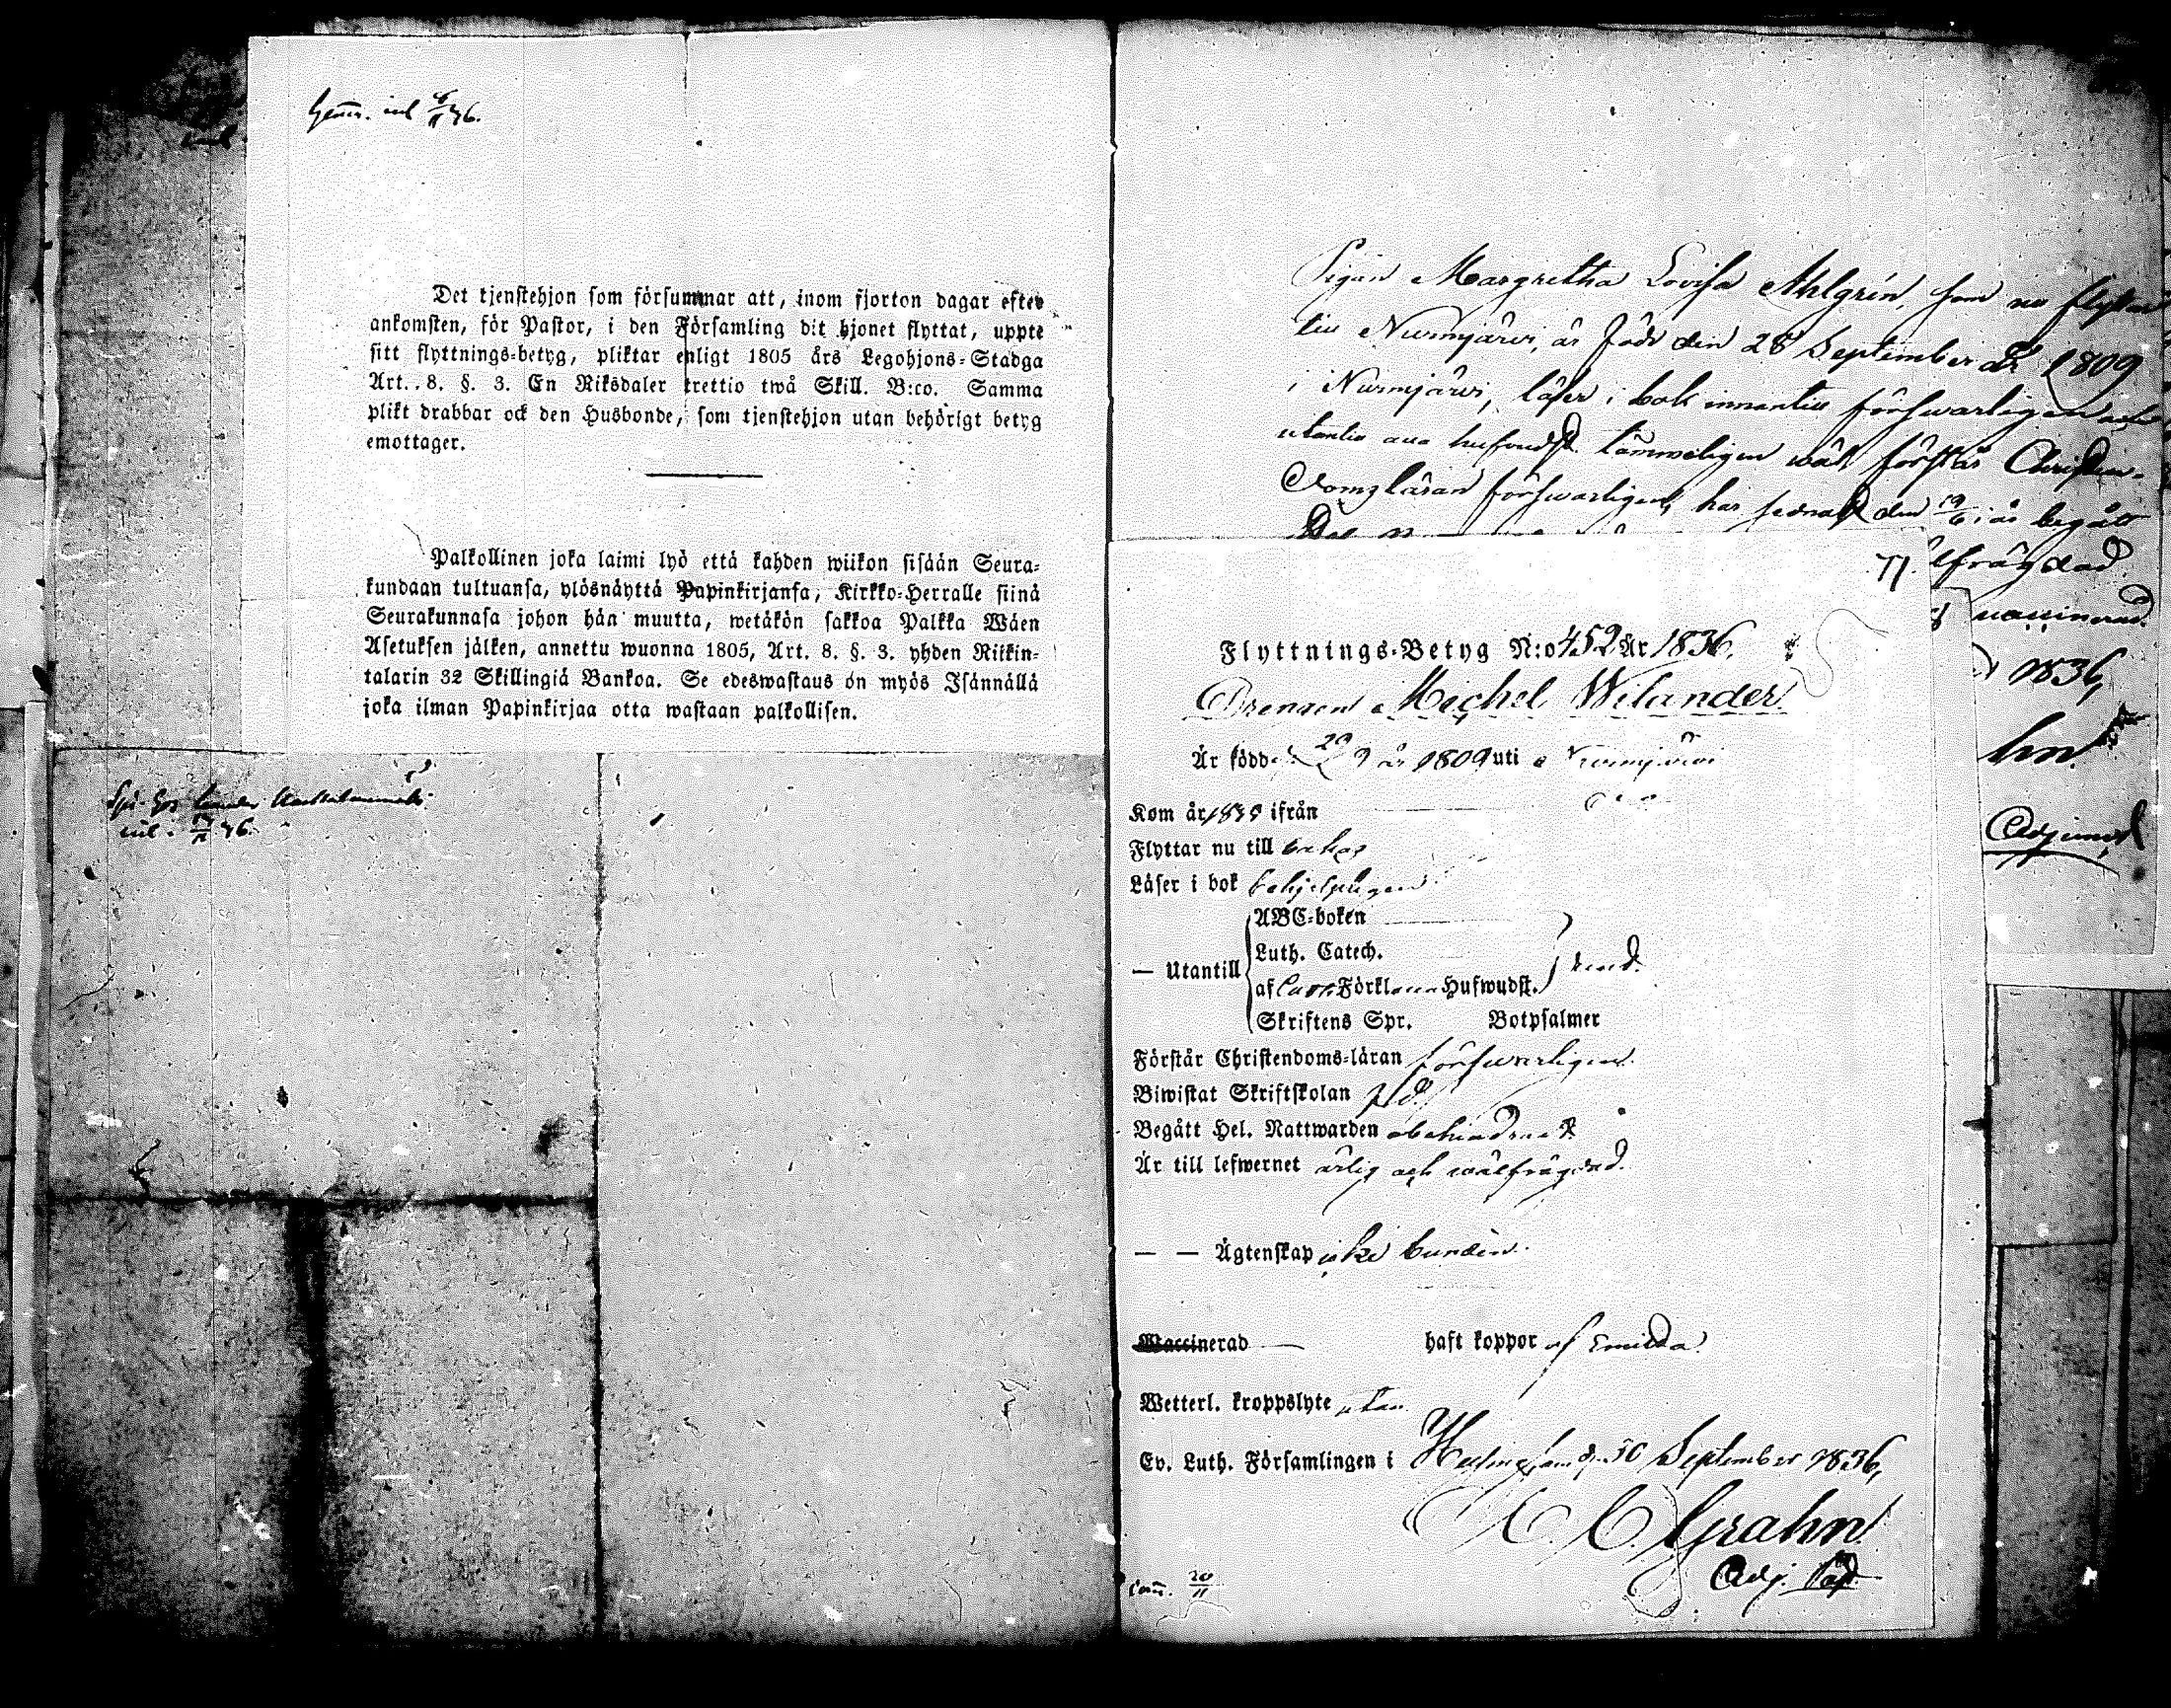 inl 6/11 36.
Det tjenstehjon som försummar att, inom fjorton dagar efter
ankomsten, för Pastor, i den Församling dit hjonet flyttat, uppte
sitt flyttnings-betyg, pliktar enligt 1805 års Legohjons-Stadga
Art. 8. §. 3. En Riksdaler trettio twå Skill. B:co. Samma
plikt drabbar ock den Husbonde, som tjenstehjon utan behörigt betyg
emottager.
Palkollinen joka laimi lyö että kahden wiikon sisään Seura-
kundaan tultuansa, ylösnäyttä Papinkirjansa, Kirkko-Herralle siinä
Seurakunnasa johon hän muutta, wetäkön sakkoa Palkka Wäen
Asetuksen jälken, annettu wuonna 1805, Art. 8. §. 3. yhden Riikin-
talarin 32 Skillingiä Bankoa. Se edeswastaus on myös Isännällä
joka ilman Papinkirjaa otta wastaan palkollisen.
hos
inl. 36.
Pigan Margretha Lovisa Ahlgrén, som nu flyttar
till Nurmijärvi, är född den 28 September år 1809
i Nurmjärvi, läser i bok innantill försvarligen och
utantill hufvudst. tämmeligen väl, förstår Christen-
domsläran försvarligen, har senast den 19/6 i år begått
lfrägdad
1836,
hn.
Adjunct
77.
Flyttnings-Betyg N:o 452 År 1836.
Drengen Michel Wilander
Är född d. 29/9 år 1809 uti Nurmijärvi
Kom år 1835 ifrån
Flyttar nu till bakas
Läser i bok behjelpligen
— Utantill
ABC-boken
Luth. Catech.
af Förkl Hufwudst.
Skriftens Spr. Botpsalmer
Förstår Christendoms-läran försvarligen.
Biwistat Skriftskolan
Begått Hel. Nattwarden obehindradt
Är till lefwernet ärlig och wälfrägdad.
— — Ägtenskap icke bunden.
Waccinerad haft koppor af Smitta.
Wetterl. kroppslyte utan
Ev. Luth. Församlingen i Helsingfors d. 30 September 1836,
Grahn
Adj. Past.
20/11